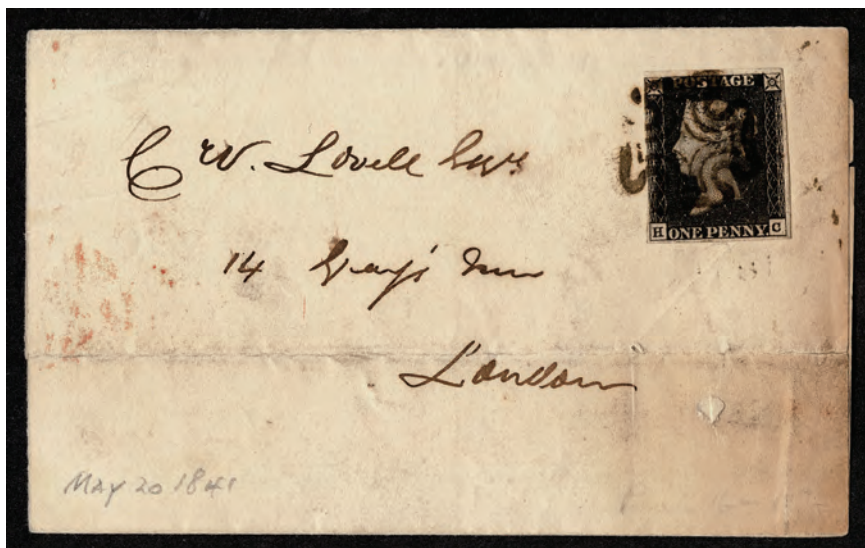 POSTAGE
H ONE PENNY C
C W. Lovell Esqre
14 Gray's Inn
London
May 20 1841